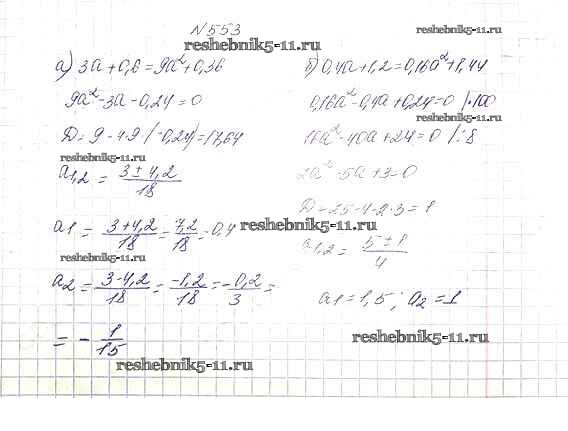 N553
reshebnik5-11.ru
reshebnik5-11.ru
а) 3a + 0,6 = 9a² + 0,36
9a² - 3a - 0,24 = 0
D = 9 - 4·9·(-0,24) = 17,64
reshebnik5-11.ru
a1,2 = (3 ± 4,2)/18
a1 = (3 + 4,2)/18 = 7,2/18 = 0,4
reshebnik5-11.ru
reshebnik5-11.ru
a2 = (3 - 4,2)/18 = (-1,2)/18 = -0,2/3 =
= -1/15
reshebnik5-11.ru
б) 0,4a + 1,2 = 0,16a² + 1,44
0,16a² - 0,4a + 0,24 = 0 |·100
reshebnik5-11.ru
16a² - 40a + 24 = 0 |:8
2a² - 5a + 3 = 0
D = 25 - 4·2·3 = 1
reshebnik5-11.ru
a1,2 = (5 ± 1)/4
a1 = 1,5; a2 = 1
reshebnik5-11.ru